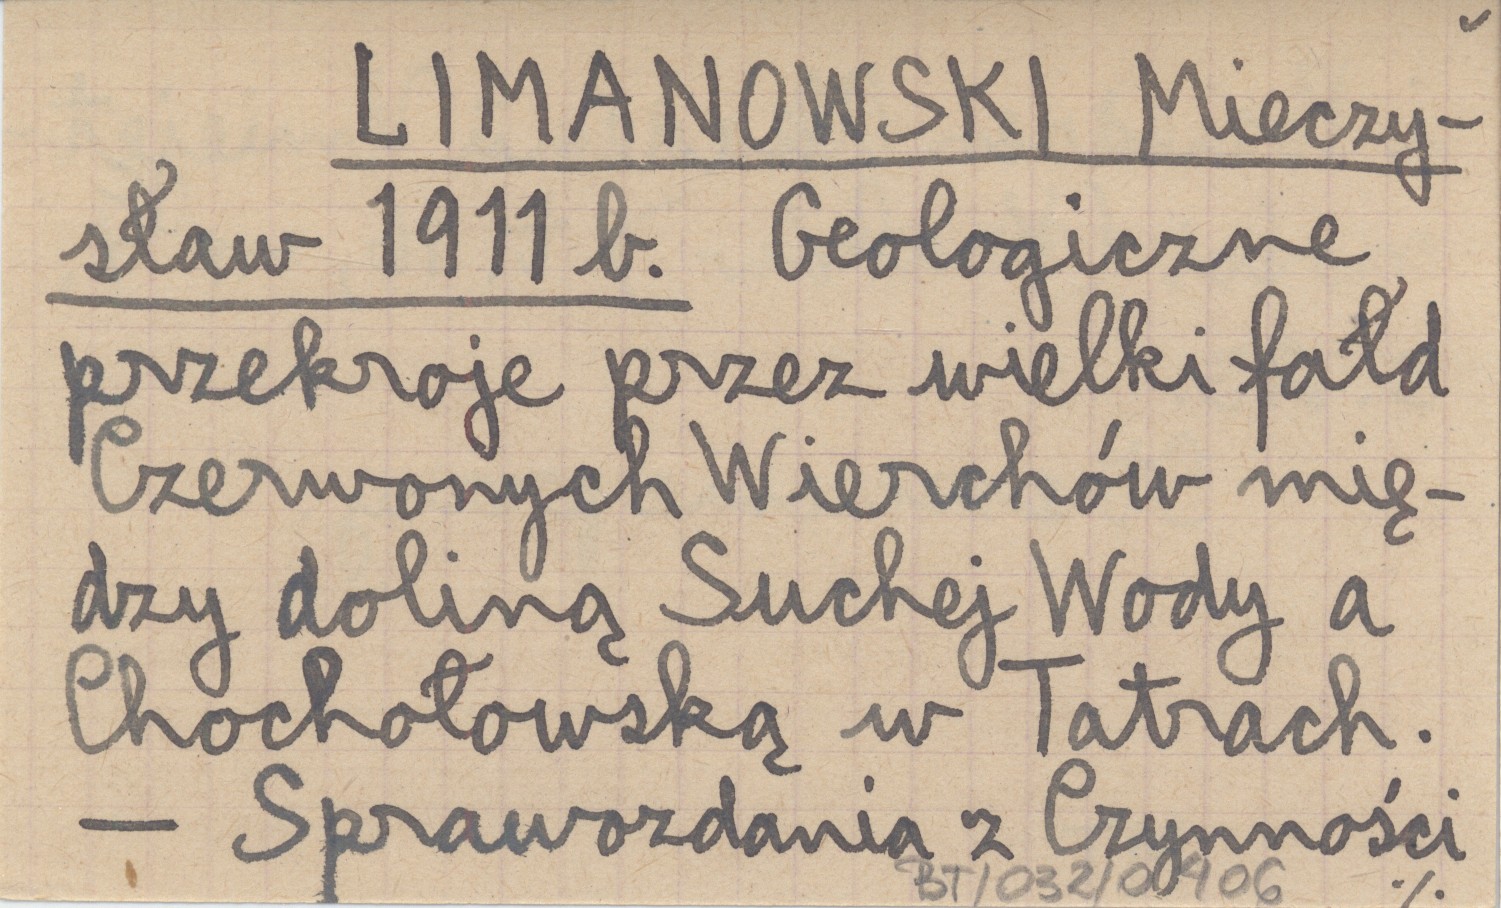 LIMANOWSKI Mieczy-
sław 1911 b. Geologiczne
przekroje przez wielki fałd
Czerwonych Wierchów mię-
dzy doliną Suchej Wody a
Chochołowską w Tatrach.
— Sprawozdania z Czynności
BT/032/0406
./.